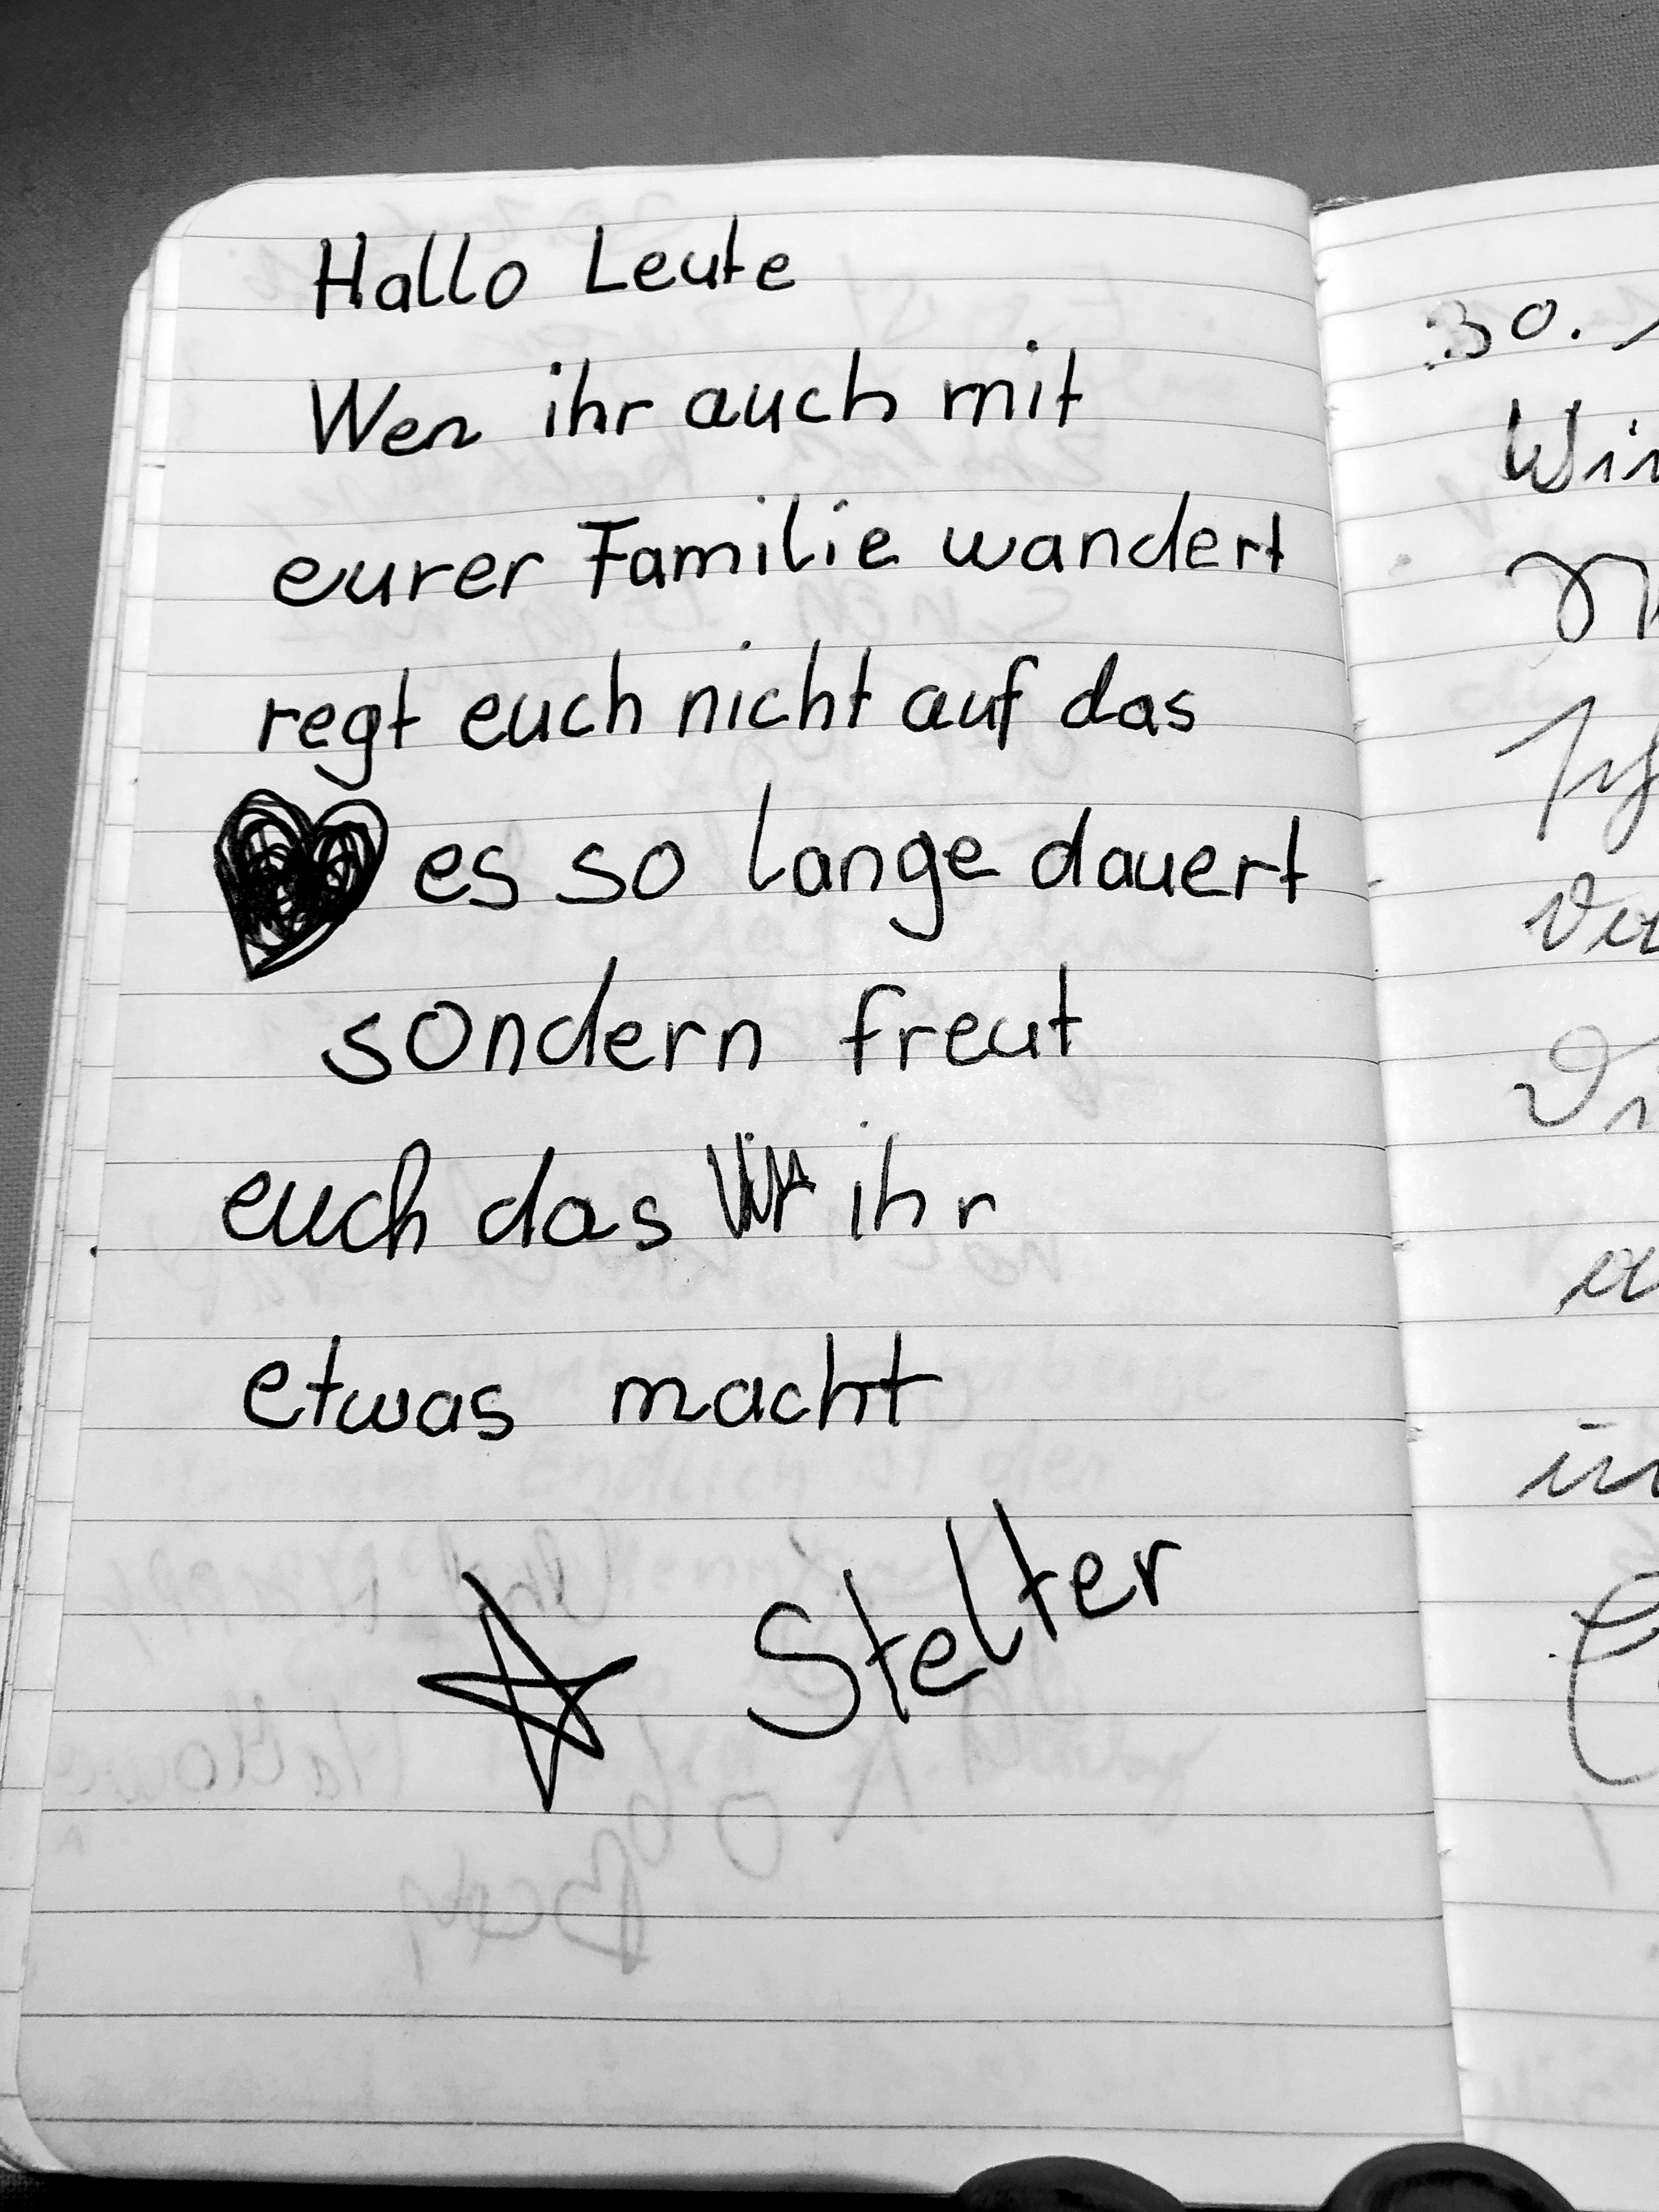 Hallo Leute
Wen ihr auch mit
eurer Familie wandert
regt euch nicht auf das
es so lange dauert
sondern freut
euch das ihr
etwas macht
Stelter
30.